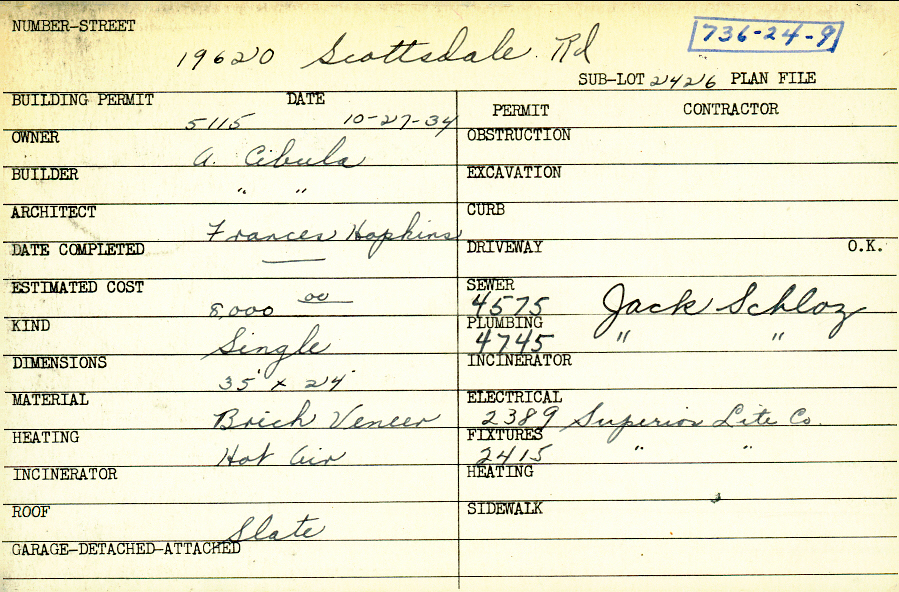 NUMBER-STREET
736-24-9
19620 Scottsdale Rd
SUB-LOT 2426 PLAN FILE
BUILDING PERMIT DATE
5115 10-27-34
OWNER
A. Cibula
BUILDER
" "
ARCHITECT
Frances Hopkins
DATE COMPLETED
—
ESTIMATED COST
8,000 00
KIND
Single
DIMENSIONS
35' x 24'
MATERIAL
Brick Veneer
HEATING
Hot Air
INCINERATOR
ROOF
Slate
GARAGE-DETACHED-ATTACHED
PERMIT CONTRACTOR
OBSTRUCTION
EXCAVATION
CURB
DRIVEWAY O.K.
SEWER
4575 Jack Schloz
PLUMBING
4745 " "
INCINERATOR
ELECTRICAL
2389 Superior Lite Co.
FIXTURES
2415 " "
HEATING
SIDEWALK